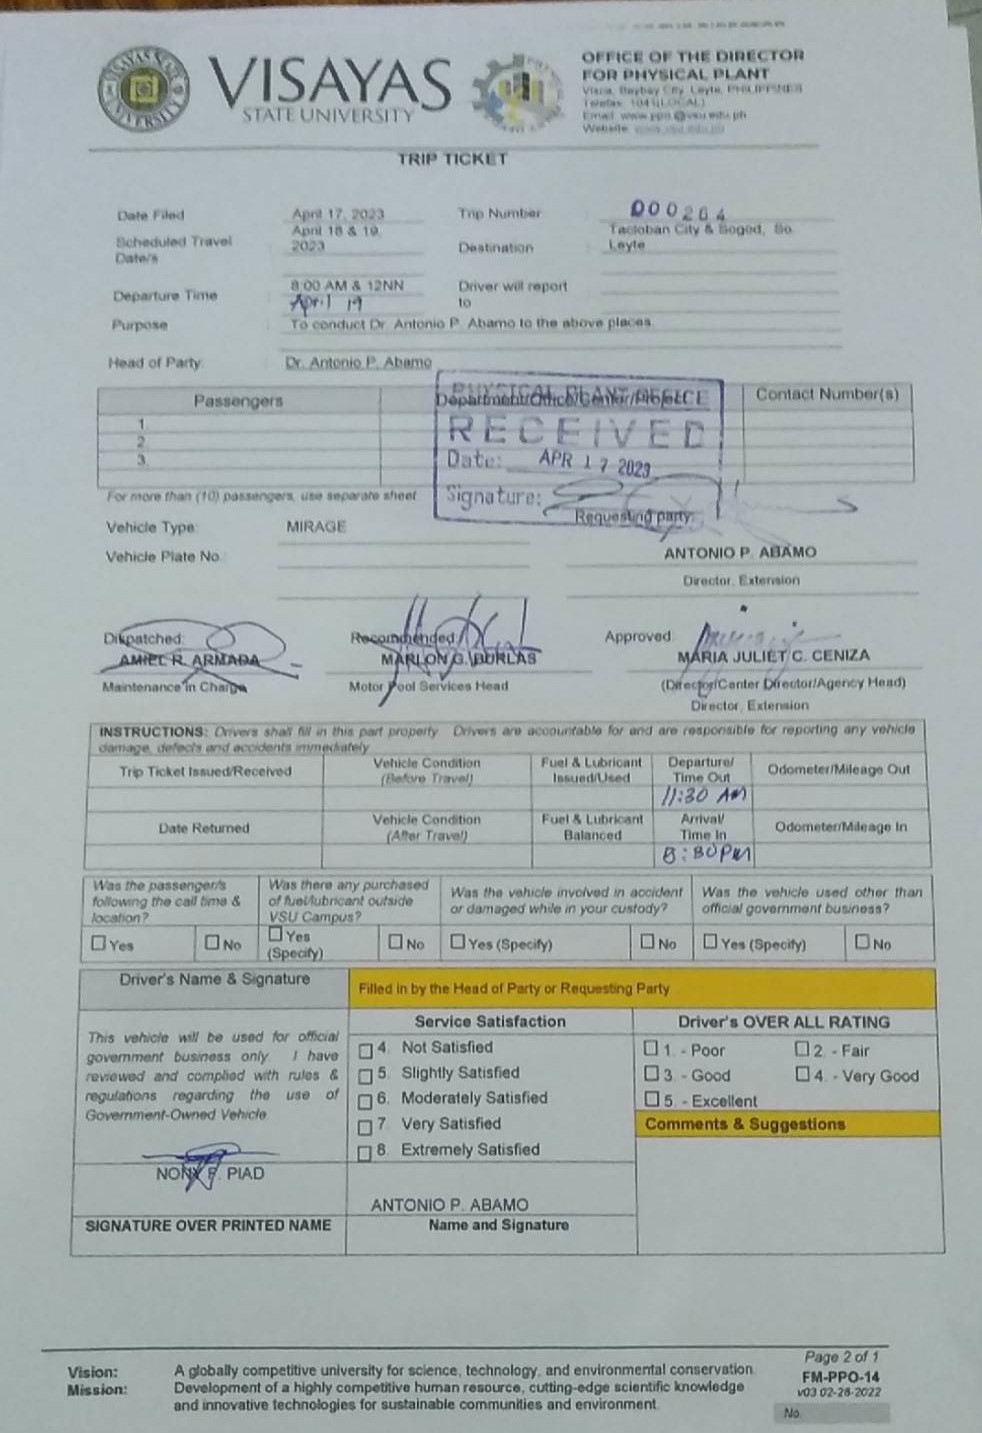 VISAYAS
STATE UNIVERSITY
OFFICE OF THE DIRECTOR
FOR PHYSICAL PLANT
Visca, Baybay City, Leyte, PHILIPPINES
Telefax: 1041(LOCAL)
Email: www.ppo@vsu.edu.ph
Website:
TRIP TICKET
Date Filed April 17, 2023 Trip Number 000264
Scheduled Travel Date/s April 18 & 19, 2023 Destination Tacloban City & Bogod, So. Leyte
Departure Time 8:00 AM & 12NN April 19 Driver will report to
Purpose To conduct Dr. Antonio P. Abamo to the above places.
Head of Party: Dr. Antonio P. Abamo
Passengers Department/Office/Center/Project Contact Number(s)
1.
2.
3.
PHYSICAL PLANT OFFICE
RECEIVED
Date: APR 17 2023
Signature:
For more than (10) passengers, use separate sheet
Requesting party:
Vehicle Type: MIRAGE
Vehicle Plate No.
ANTONIO P. ABAMO
Director, Extension
Dispatched: Recommended: Approved:
AMIEL R. ARMADA MARLON G. BURLAS MARIA JULIET C. CENIZA
Maintenance In Charge Motor Pool Services Head (Director/Center Director/Agency Head)
Director, Extension
INSTRUCTIONS: Drivers shall fill in this part property Drivers are accountable for and are responsible for reporting any vehicle
damage, defects and accidents immediately
Trip Ticket Issued/Received Vehicle Condition (Before Travel) Fuel & Lubricant Issued/Used Departure/ Time Out Odometer/Mileage Out
11:30 AM
Date Returned Vehicle Condition (After Travel) Fuel & Lubricant Balanced Arrival/ Time In Odometer/Mileage In
8:30PM
Was the passenger/s following the call time & location? Was there any purchased of fuel/lubricant outside VSU Campus? Was the vehicle involved in accident or damaged while in your custody? Was the vehicle used other than official government business?
Yes No Yes (Specify) No Yes (Specify) No Yes (Specify) No
Driver's Name & Signature Filled in by the Head of Party or Requesting Party
This vehicle will be used for official
government business only. I have
reviewed and complied with rules &
regulations regarding the use of
Government-Owned Vehicle
NONY F. PIAD
SIGNATURE OVER PRINTED NAME
Service Satisfaction
4. Not Satisfied
5. Slightly Satisfied
6. Moderately Satisfied
7. Very Satisfied
8. Extremely Satisfied
ANTONIO P. ABAMO
Name and Signature
Driver's OVER ALL RATING
1. - Poor 2. - Fair
3. - Good 4. - Very Good
5. - Excellent
Comments & Suggestions
Vision: A globally competitive university for science, technology, and environmental conservation.
Mission: Development of a highly competitive human resource, cutting-edge scientific knowledge
and innovative technologies for sustainable communities and environment.
Page 2 of 1
FM-PPO-14
v03 02-28-2022
No.